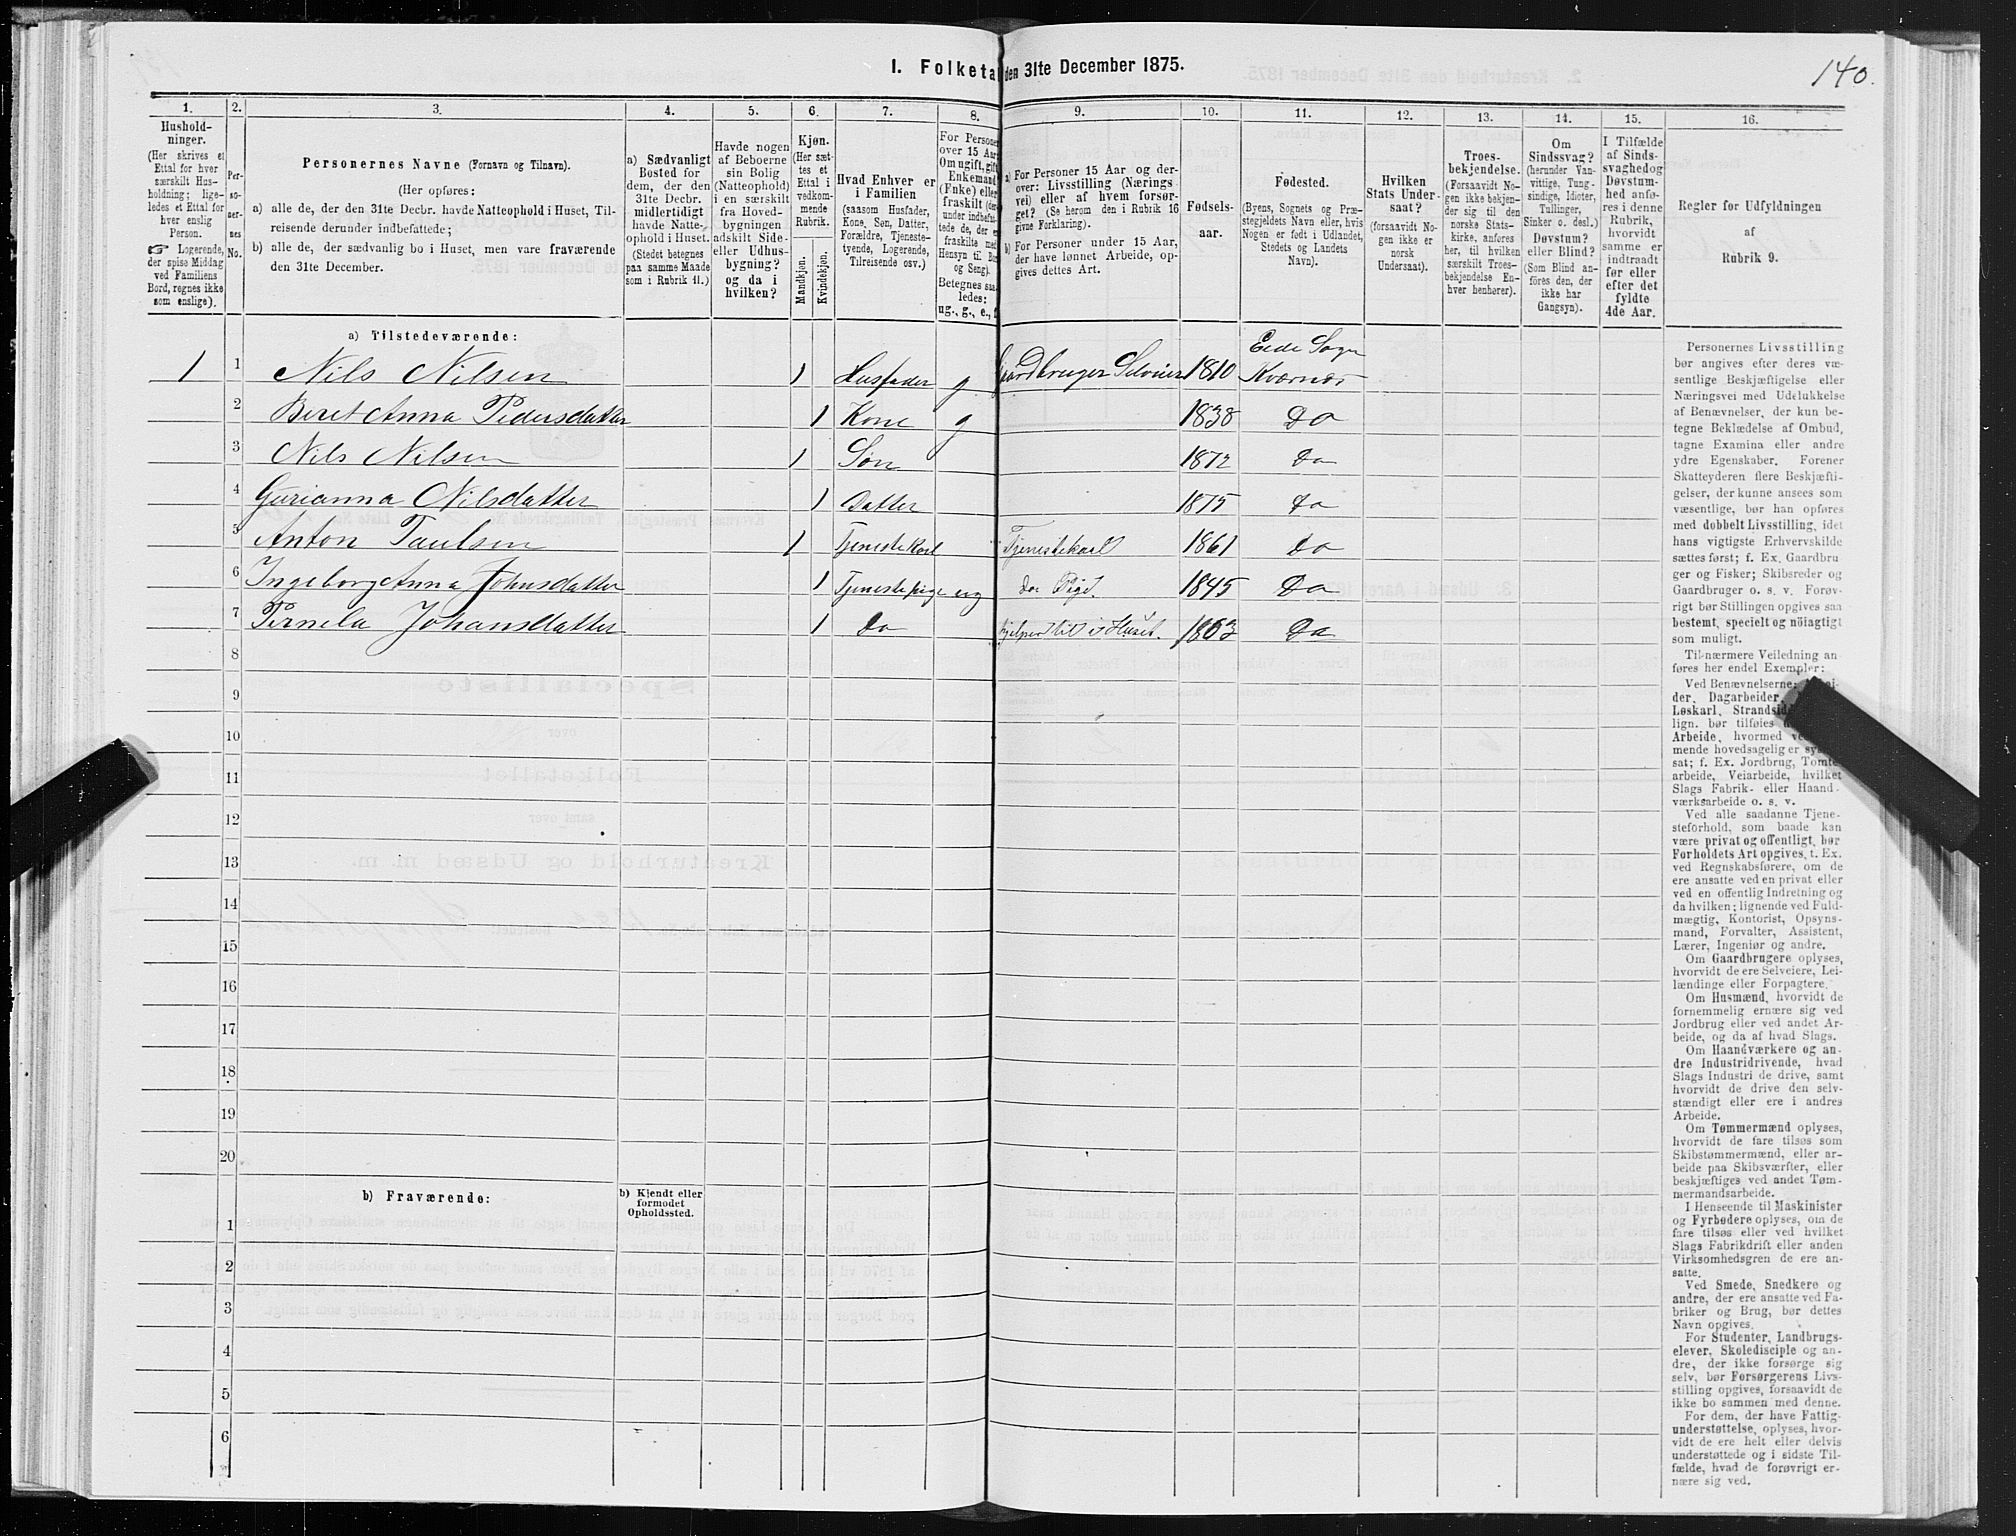 140.
I. Folketal den 31te December 1875.
1. 2. 3. 4. 5. 6. 7. 8. 9. 10. 11. 12. 13. 14. 15. 16.
Hushold-
ninger.
(Her skrives et
Ettal for hver
særskilt Hus-
holdning; lige-
ledes et Ettal for
hver enslig
Person.
☞ Logerende,
der spise Middag
ved Familiens
Bord, regnes ikke
som enslige).
Per-
so-
ner-
nes
No.
Personernes Navne (Fornavn og Tilnavn).
(Her opføres:
a) alle de, der den 31te Decbr. havde Natteophold i Huset, Til-
reisende derunder indbefattede;
b) alle de, der sædvanlig bo i Huset, men vare fraværende
den 31te December.
a) Sædvanligt
Bosted for
dem, der den
31te Decbr.
midlertidigt
havde Natte-
ophold i Huset.
(Stedet betegnes
paa samme Maade
som i Rubrik 11.)
Havde nogen
af Beboerne
sin Bolig
(Natteophold)
i en særskilt
fra Hoved-
bygningen
adskilt Side-
eller Udhus-
bygning?
og da i
hvilken?
Kjøn.
(Her sæt-
tes et
Ettal i
vedkom-
mende
Rubrik.
Mandkjøn.
Kvindekjøn.
Hvad Enhver er
i Familien
(saasom Husfader,
Kone, Søn, Datter,
Forældre, Tjeneste-
tyende, Logerende,
Tilreisende osv.)
For Personer
over 15 Aar:
Om ugift, gift,
Enkemand
(Enke) eller
fraskilt
under indbefat-
tede de, der e
fraskilte med
Hensyn til Bor
og Seng).
Betegnes saa-
ledes:
ug., g., e., f.
a) For Personer 15 Aar og der-
over: Livsstilling (Nærings-
vei) eller af hvem forsør-
get? (Se herom den i Rubrik 16
givne Forklaring).
b) For Personer under 15 Aar,
der have lønnet Arbeide, op-
gives dettes Art.
Fødsels-
aar.
Fødested.
(Byens, Sognets og Præ-
stegjeldets Navn eller, hvis
Nogen er født i Udlandet,
Stedets og Landets
Navn).
Hvilken
Stats Under-
saat?
(forsaavidt No-
gen ikke er
norsk
Undersaat).
Troes-
bekjendelse.
(Forsaavidt No-
gen ikke bekjen-
der sig til den
norske Stats-
kirke, anføres
her, til hvilken
særskilt Troes-
bekjendelse En-
hver henhører).
Om
Sindssvag?
(herunder Van-
vittige, Tung-
sindige, Idioter,
Tullinger,
Sinker o. desl.)
Døvstum?
eller Blind?
(Som Blind an-
føres den, der
ikke har
Gangsyn).
I Tilfælde
af Sinds-
svaghed og
Døvstum-
hed anfø-
res i denne
Rubrik,
hvorvidt
samme er
indtraadt
før eller
efter det
fyldte
4de Aar.
Regler for Udfyldningen
af
Rubrik 9.
a) Tilstedeværende:
Eide Sogn
1 1 Nils Nilsen 1 Husfader g Gaardbruger Selveier 1810 Kværnæs
2 Beret Anna Pedersdatter 1 Kone g 1838 Do
3 Nils Nilsen 1 Søn 1872 Do
4 Gurianna Nilsdatter 1 Datter 1875 Do
5 Anton Paulsen 1 Tjenestekarl Tjenestekarl 1861 Do
6 Ingeborg Anna Johnsdatter 1 Tjenestepige ug do Pige 1845 Do
7 Pernela Johansdatter 1 Do hjelper til i Huset. 1863 Do
8
9
10
11
12
13
14
15
16
17
18
19
20
b) Fraværende:
b) Kjendt eller
formodet
Opholdssted.
1
2
3
4
5
6
Personernes Livsstilling
bør angives efter deres væ-
sentlige Beskjæftigelse eller
Næringsvei med Udelukkelse
af Benævnelser, der kun be-
tegne Beklædelse af Ombud,
tagne Examina eller andre
ydre Egenskaber. Forener
Skatteyderen flere Beskjæfti-
gelser, der kunne ansees som
væsentlige, bør han opføres
med dobbelt Livsstilling, idet
hans vigtigste Erhvervskilde
sættes først; f. Ex. Gaardbru-
ger og Fisker; Skibsreder og
Gaardbruger o. s. v. Forøv-
rigt bør Stillingen opgives saa
bestemt, specielt og nöiagtigt
som muligt.
Til nærmere Veiledning an-
føres her endel Exempler:
Ved Benævnelserne: Arbei-
der, Dagarbeider,
Løskarl, Strandsid
lign. bør tilføies
Arbeide, hvormed ved
mende hovedsagelig er sys
sat; f. Ex. Jordbrug, Tomte-
arbeide, Veiarbeide, hvilket
Slags Fabrik- eller Haand-
værksarbeide o. s. v.
Ved alle saadanne Tjene-
steforhold, som baade kan
være privat og offentligt, bør
Forholdets Art opgives, t. Ex.
ved Regnskabsførere, om de
ere ansatte ved en privat eller
ved en offentlig Indretning og
da hvilken; lignende ved Fuld-
mægtig, Kontorist, Opsyns-
mand, Forvalter, Assistent,
Lærer, Ingeniør og andre.
Om Gaardbrugere oplyses,
hvorvidt de ere Selveiere, Lei-
lændinge eller Forpagtere.
Om Husmænd, hvorvidt de
fornemmelig ernære sig ved
Jordbrug eller ved andet Ar-
beide, og da af hvad Slags.
Om Haandværkere og an-
dre Industridrivende, hvad
Slags Industri de drive, samt
hvorvidt de drive den selv-
stændigt eller ere i andres
Arbeide.
Om Tømmermænd oplyses,
hvorvidt de fare tilsøs som
Skibstømmermænd, eller ar-
beide paa Skibsværfter, eller
beskjæftiges ved andet Tøm-
mermandsarbeide.
I Henseende til Maskinister
og Fyrbødere oplyses, om de
fare tilsøs eller ved hvilket
Slags Fabrikdrift eller anden
Virksomhedsgren de ere an-
satte.
Ved Smede, Snedkere og
andre, der ere ansatte ved Fa-
briker og Brug, bør dettes
Navn opgives.
For Studenter, Landbrugs-
elever, Skoledisciple og an-
dre, der ikke forsørge sig
selv, bør Forsørgerens Livs-
stilling opgives, forsaavidt de
ikke bo sammen med denne.
For dem, der have Fattig-
understøttelse, oplyses, hvor-
vidt de ere helt eller delvis
understøttede og i sidste Til-
fælde, hvad de forøvrigt er-
nære sig ved.